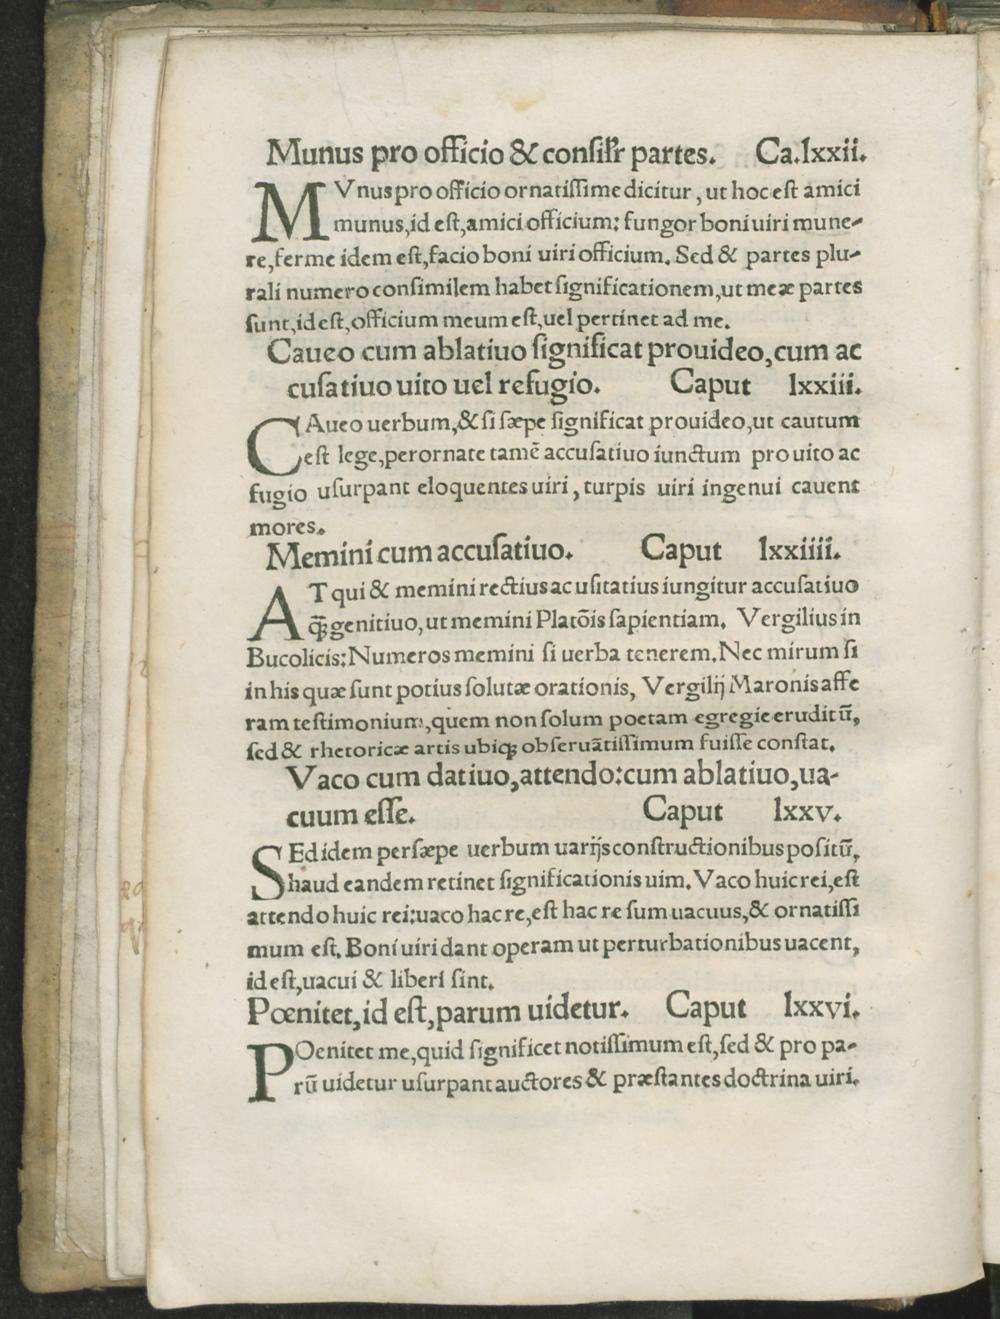 Munus pro officio & consil̃r partes. Ca.lxxii.
MVnus pro officio ornatissime dicitur, ut hoc est amici
munus, id est, amici officium: fungor boni uiri mune-
re, ferme idem est, facio boni uiri officium. Sed & partes plu-
rali numero consimilem habet significationem, ut meæ partes
sunt, id est, officium meum est, uel pertinet ad me.
Caueo cum ablatiuo significat prouideo, cum ac
cusatiuo uito uel refugio. Caput lxxiii.
CAueo uerbum, & si sæpe significat prouideo, ut cautum
est lege, perornate tamē accusatiuo iunctum pro uito ac
fugio usurpant eloquentes uiri, turpis uiri ingenui cauent
mores.
Memini cum accusatiuo. Caput lxxiiii.
ATqui & memini rectius ac usitatius iungitur accusatiuo
q̄ꝫ genitiuo, ut memini Platōis sapientiam. Vergilius in
Bucolicis: Numeros memini si uerba tenerem. Nec mirum si
in his quæ sunt potius solutæ orationis, Vergilij Maronis affe
ram testimonium, quem non solum poetam egregie eruditū,
sed & rhetoricæ artis ubiqꝫ obseruātissimum fuisse constat.
Vaco cum datiuo, attendo: cum ablatiuo, ua-
cuum esse. Caput lxxv.
SEd idem persæpe uerbum uarijs constructionibus positū,
haud eandem retinet significationis uim. Vaco huic rei, est
attendo huic rei: uaco hac re, est hac re sum uacuus, & ornatissi
mum est. Boni uiri dant operam ut perturbationibus uacent,
id est, uacui & liberi sint.
Pœnitet, id est, parum uidetur. Caput lxxvi.
POenitet me, quid significet notissimum est, sed & pro pa-
rū uidetur usurpant auctores & præstantes doctrina uiri.